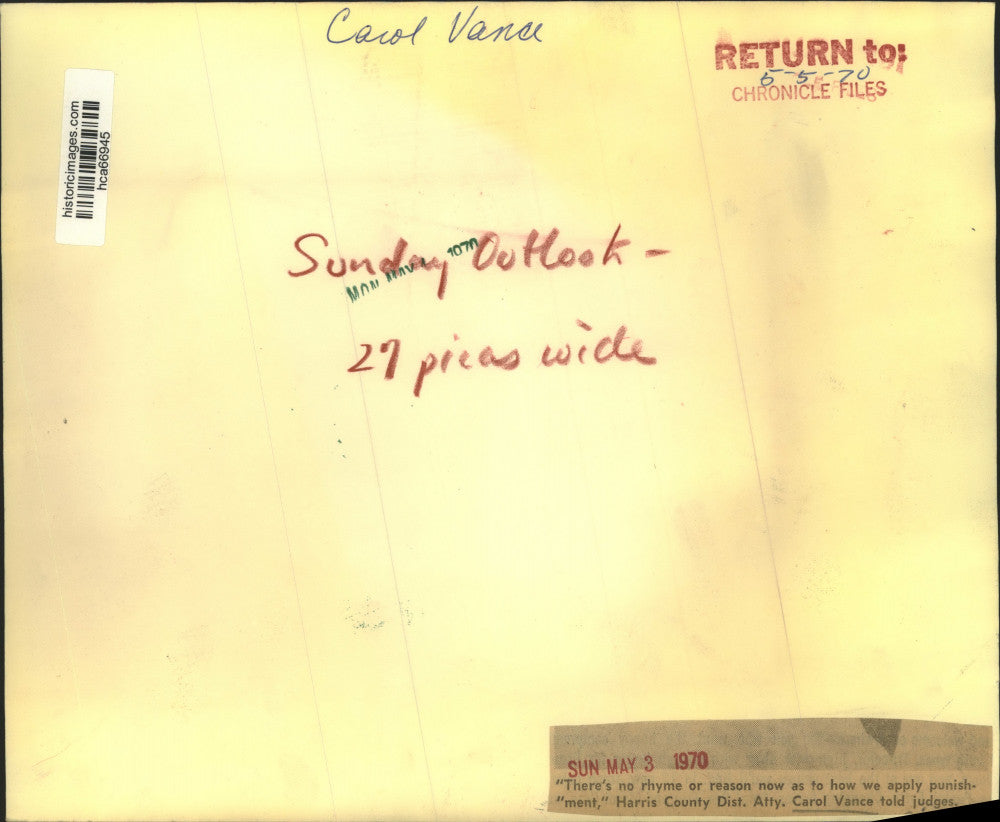 Carol Vance
RETURN to:
5-5-70
CHRONICLE FILES
historicimages.com
hca66945
Sunday Outlook -
MON MAY 1970
27 picas wide
SUN MAY 3 1970
"There's no rhyme or reason now as to how we apply punish-
"ment," Harris County Dist. Atty. Carol Vance told judges.